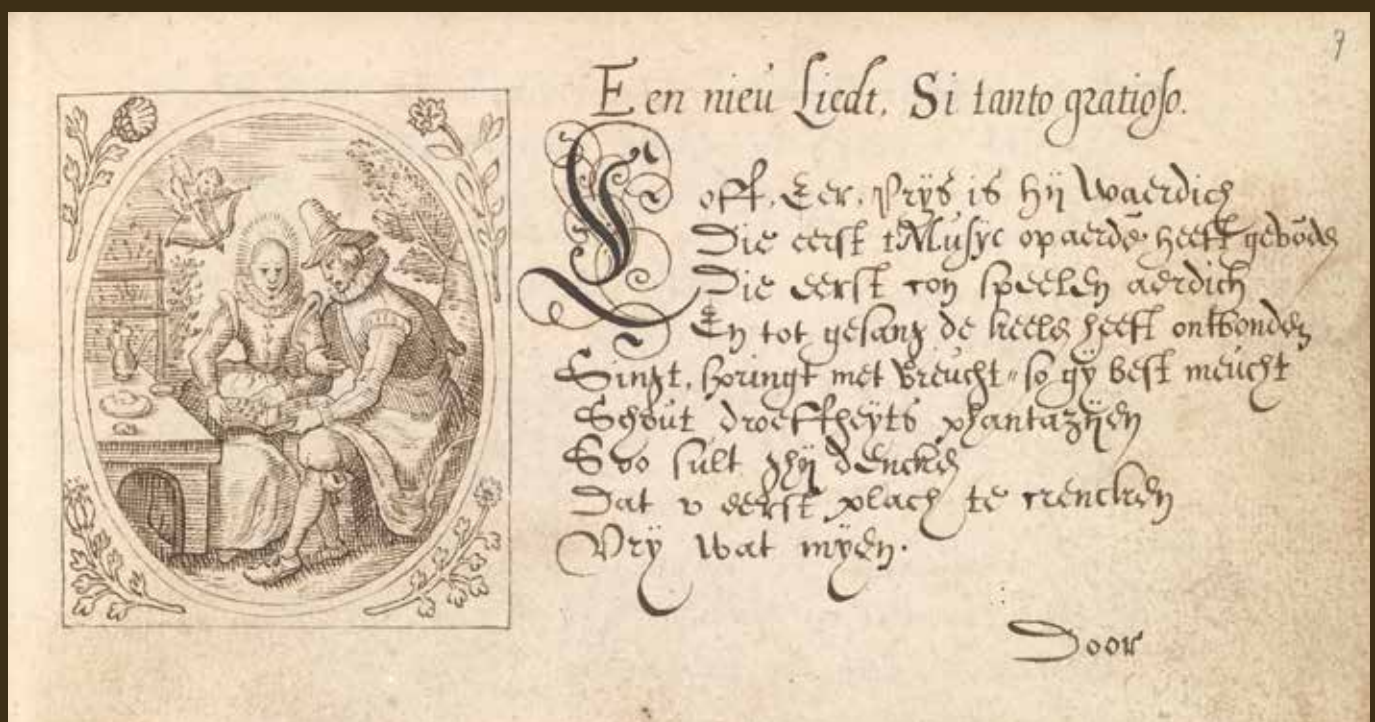 7
Een nieu Liedt. Si tanto gratioso.
Loff, Eer, Prijs is hij waerdich
Die eerst tMusyc op aerdē heeft gevōdē
Die eerst con speelen aerdich
En tot gesang de keele heeft ontbonden
Singt, springt met vreucht so gy best meucht
Schout droeffheyts phantazijen
Soo sult ghij dencken
Dat v eerst plach te crencken
Vry wat myen.
Door